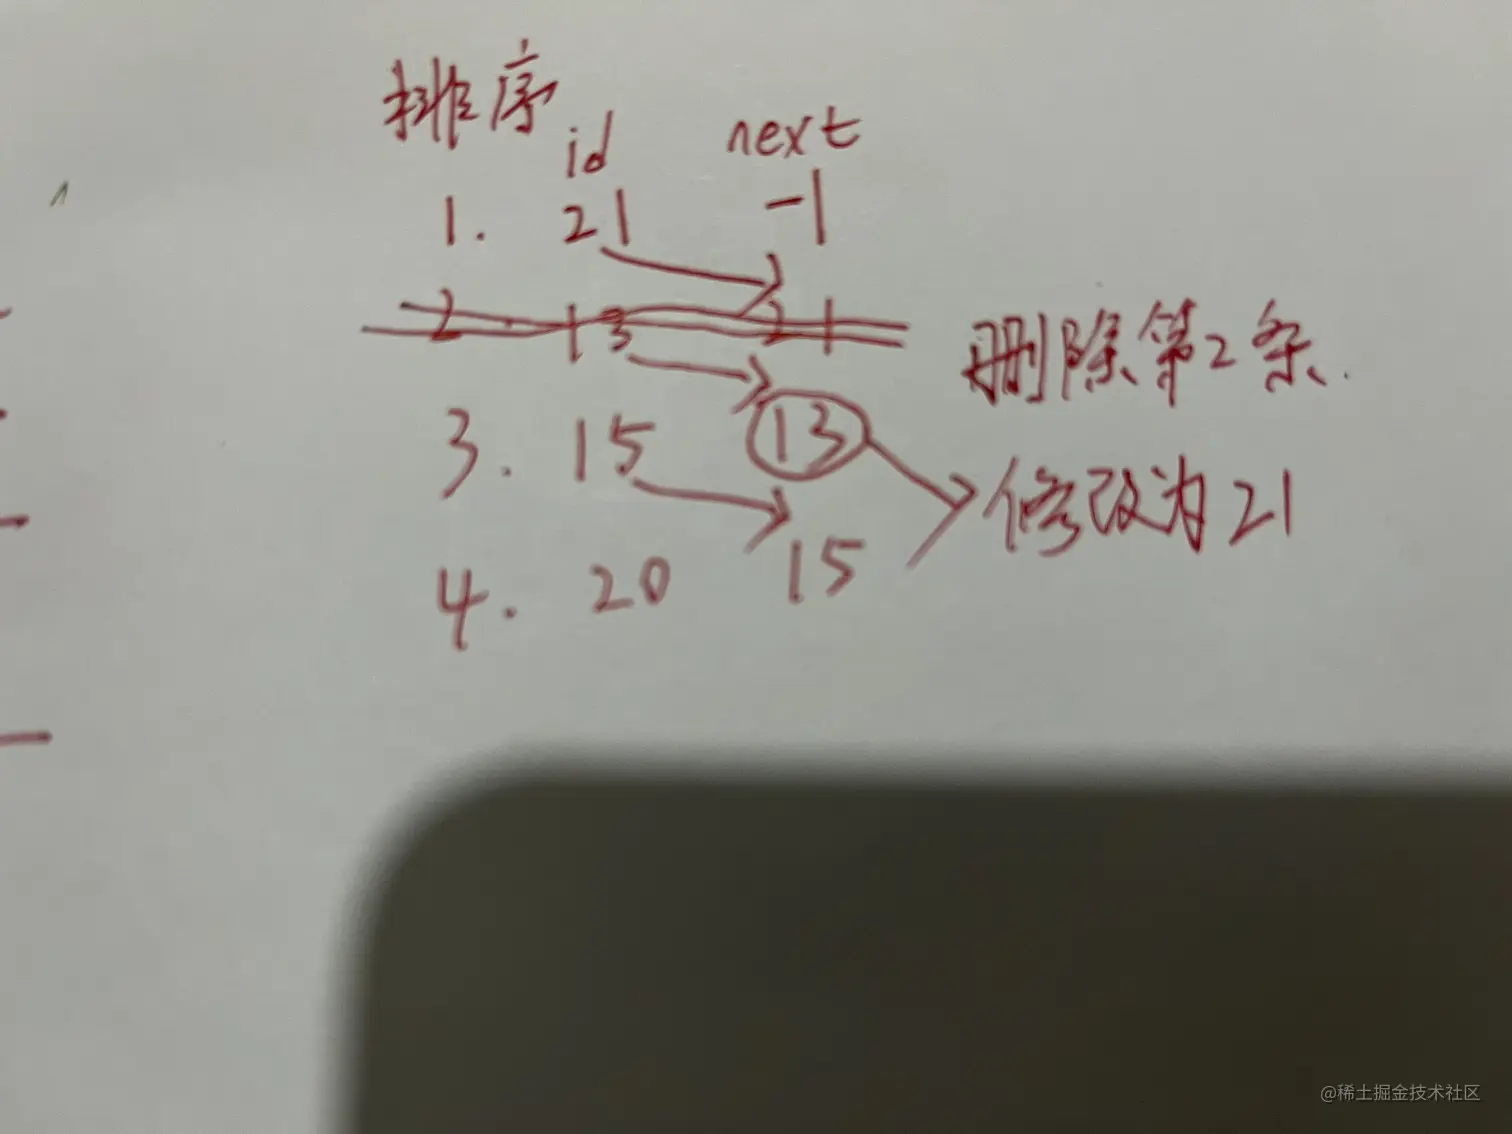 排序
id next
1. 21 -1
2. 13 21 删除第2条.
3. 15 13 修改为21
4. 20 15
@稀土掘金技术社区